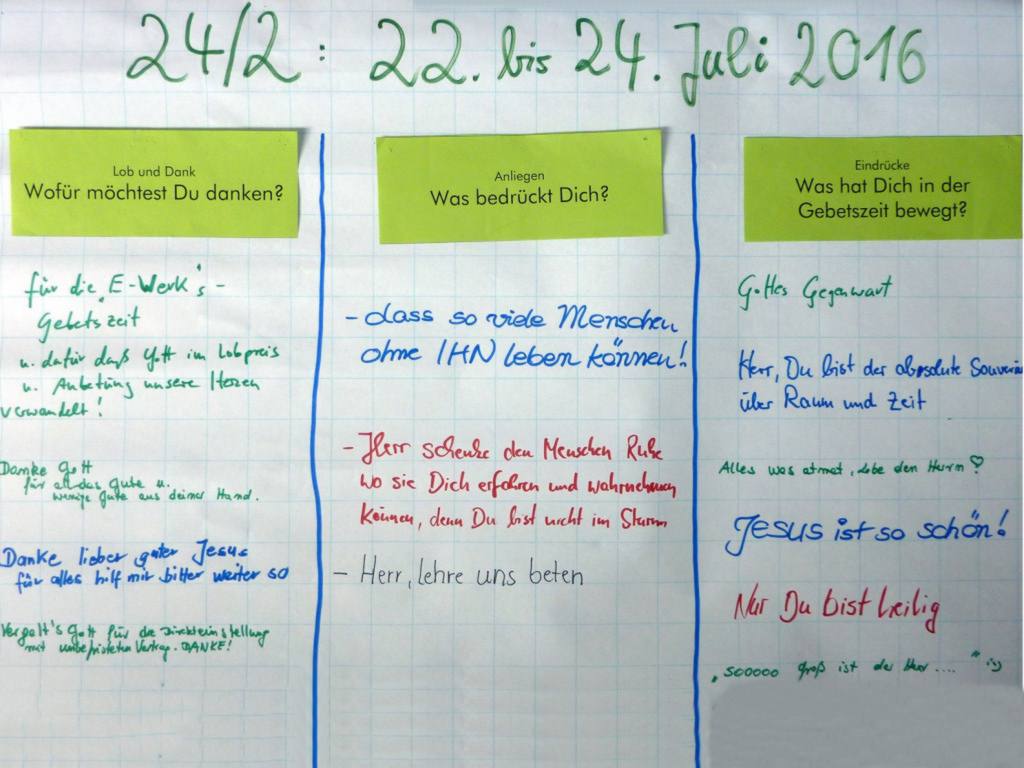 24/2: 22. bis 24. Juli 2016
Lob und Dank
Wofür möchtest Du danken?
für die E-Werk's-
Gebetszeit
u. dafür daß Gott im Lobpreis
u. Anbetung unsere Herzen
verwandelt!
Danke Gott
für all das Gute u.
wenige Gute aus deiner Hand.
Danke lieber guter Jesus
für alles hilf mir bitter weiter so
Vergelt's Gott für die Direkteinstellung
mit unbefristeten Vertrag. DANKE!
Anliegen
Was bedrückt Dich?
- dass so viele Menschen
ohne IHN leben können!
- Herr schenke den Menschen Ruhe
wo sie Dich erfahren und wahrnehmen
können, denn Du bist nicht im Sturm
- Herr, lehre uns beten
Eindrücke
Was hat Dich in der
Gebetszeit bewegt?
Gottes Gegenwart
Herr, Du bist der absolute Souverän
über Raum und Zeit
Alles was atmet, lobe den Herrn ♡
Jesus ist so schön!
Nur Du bist heilig
„sooooo groß ist der Herr ...." :-)